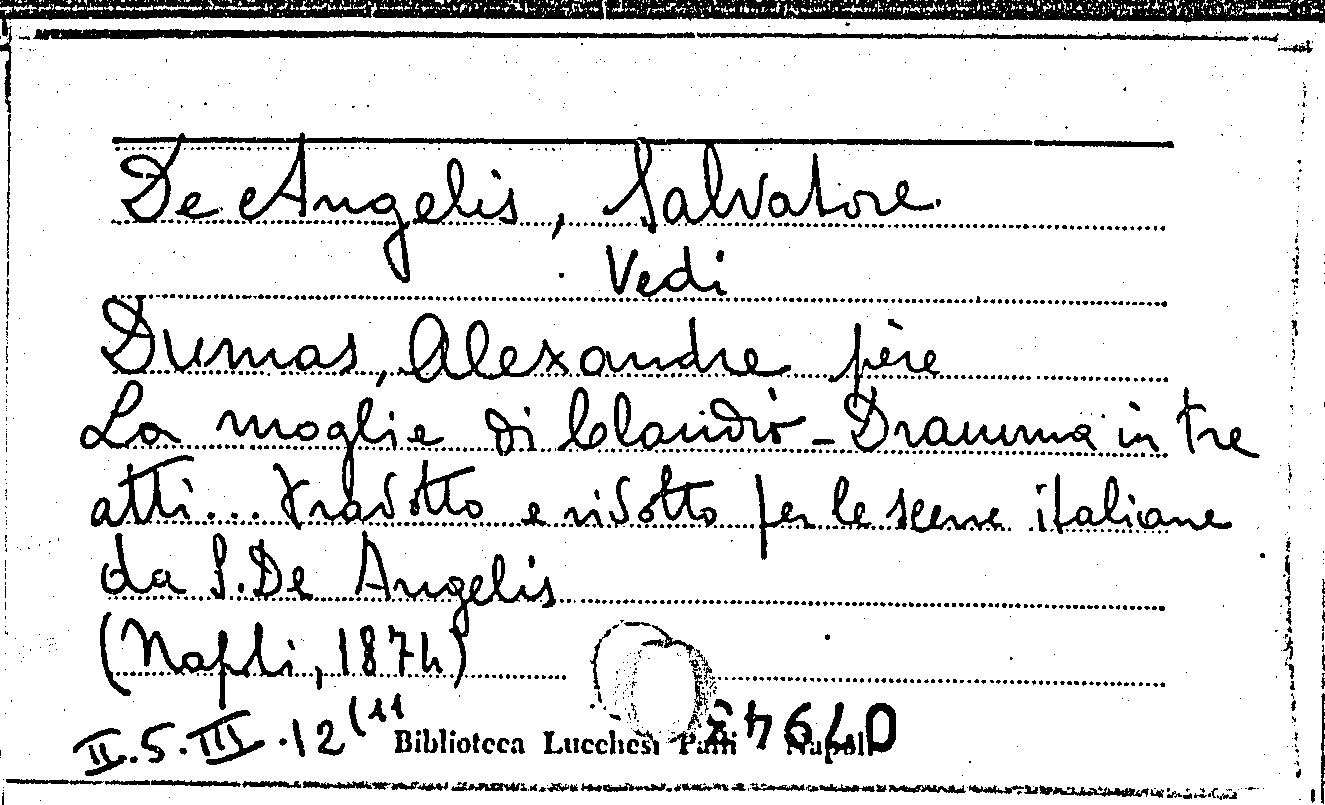 De Angelis, Salvatore
Vedi
Dumas, Alexandre père
La moglie di Claudio - Dramma in tre
atti... tradotto e ridotto per le scene italiane
da S. De Angelis
(Napoli, 1874)
II.5.III.12(11
Biblioteca Lucchesi Palli Napoli